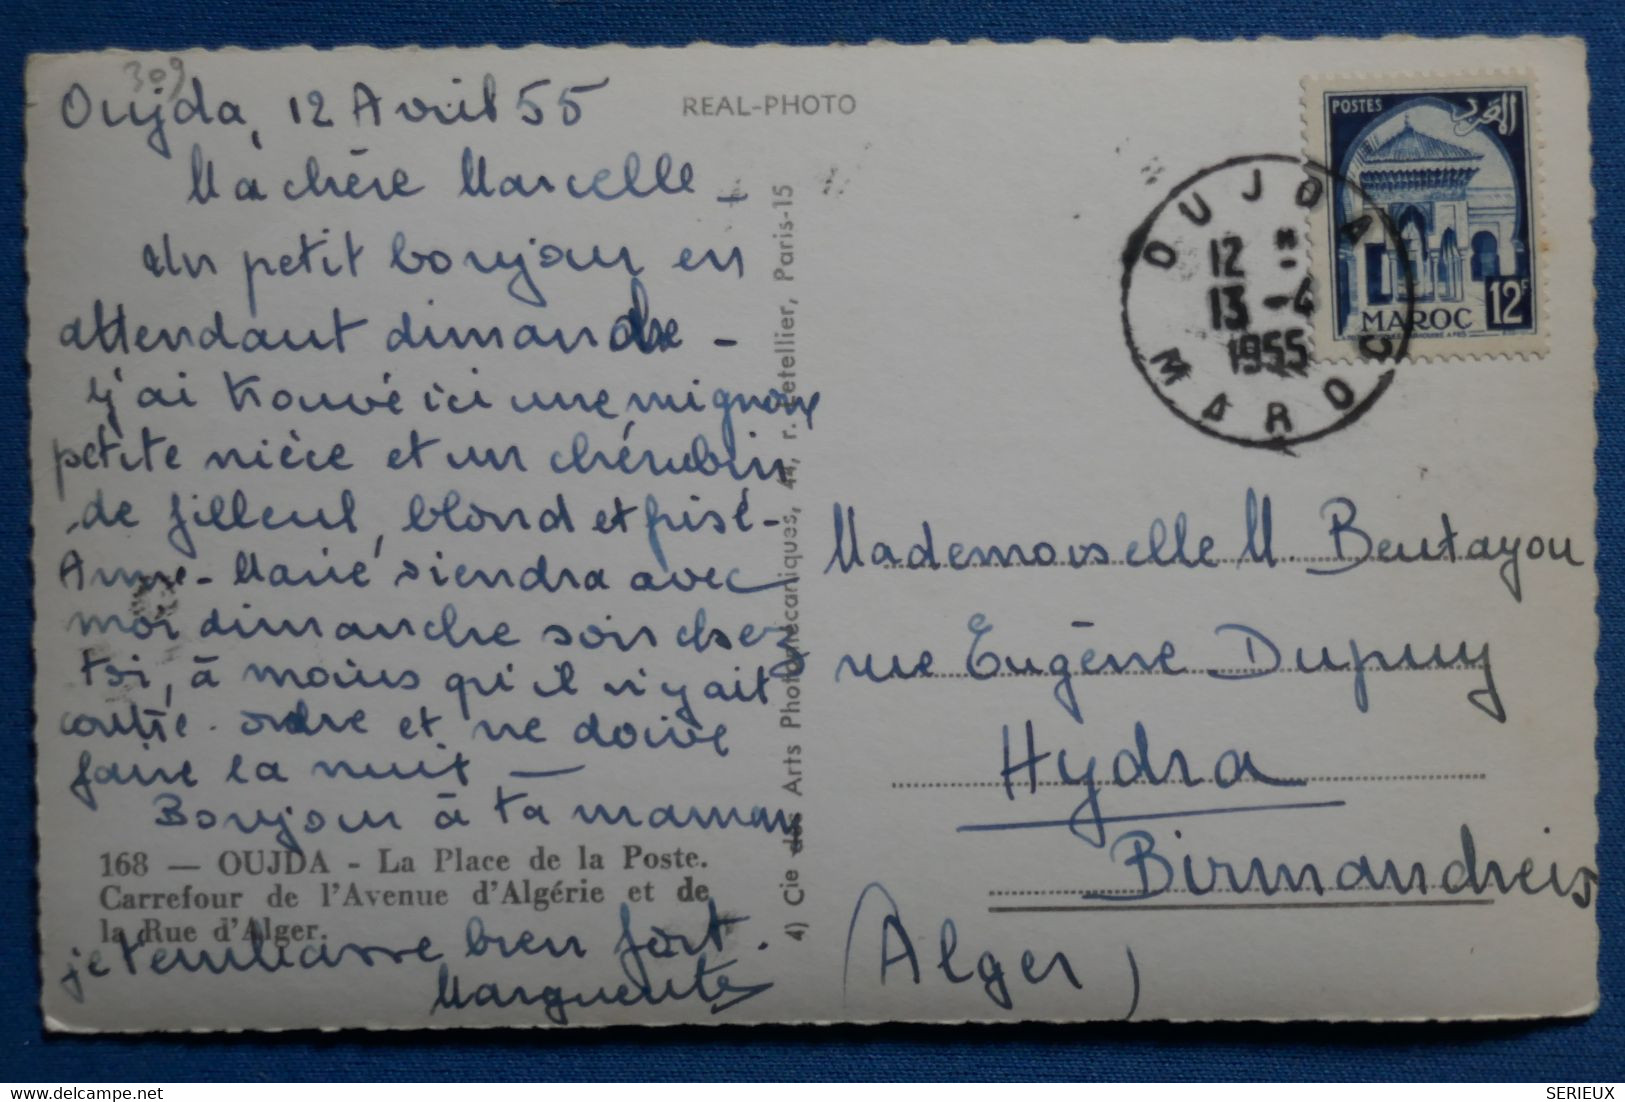 309
Oujda, 12 Avril 55
Ma chère Marcelle -
Un petit bonjour en
attendant dimanche -
j'ai trouvé ici une mignonne
petite nièce et un chérubin
de filleul, blond et frisé -
Anne-Marie viendra avec
moi dimanche soir chez
toi, à moins qu'il n'y ait
contre-ordre et ne doive
faire la nuit —
Bonjour à ta maman
168 — OUJDA - La Place de la Poste.
Carrefour de l'Avenue d'Algérie et de
la Rue d'Alger.
je t'embrasse bien fort.
Marguerite
REAL-PHOTO
4) Cie des Arts Photomécaniques, 44, r. Letellier, Paris-15
POSTES
المغرب
MAROC
12F
OUJDA
12 H
13 -4
1955
MAROC
Mademoiselle M. Bentayou
rue Eugène Dupuy
Hydra
Birmandreis
(Alger)
SERIEUX